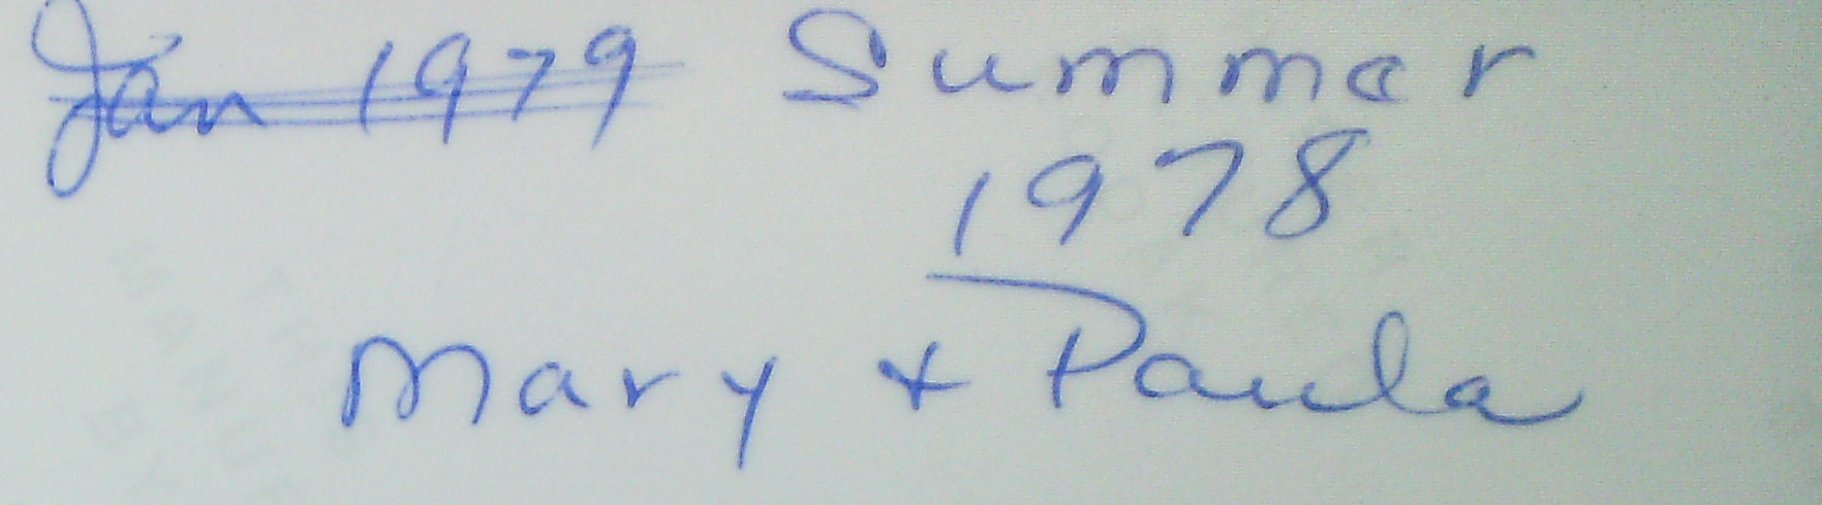 Jan 1979 Summer
1978
Mary + Paula